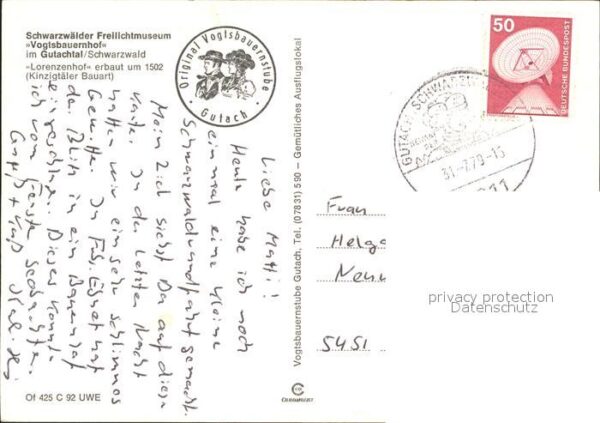 Schwarzwälder Freilichtmuseum
»Vogtsbauernhof«
im Gutachtal/Schwarzwald
»Lorenzenhof« erbaut um 1502
(Kinzigtäler Bauart)
Original Vogtsbauernstube
· Gutach ·
Liebe Matti!
Heute habe ich noch
einmal eine kleine
Schwarzwaldrundfahrt gemacht.
Mein Ziel siehst Du auf dieser
Karte. In der letzten Nacht
hatten wir ein sehr schlimmes
Gewitter. In hat
der Blitz in ein Bauernhof
eingeschlagen. Dieses konnte
ich vom Fenster beobachten.
Gruß + Kuß
Of 425 C 92 UWE
Vogtsbauernstube Gutach, Tel. (07831) 590 – Gemütliches Ausflugslokal
50
DEUTSCHE BUNDESPOST
GUTACH
31.-7.79-15
Frau
Helga
5451
privacy protection
Datenschutz